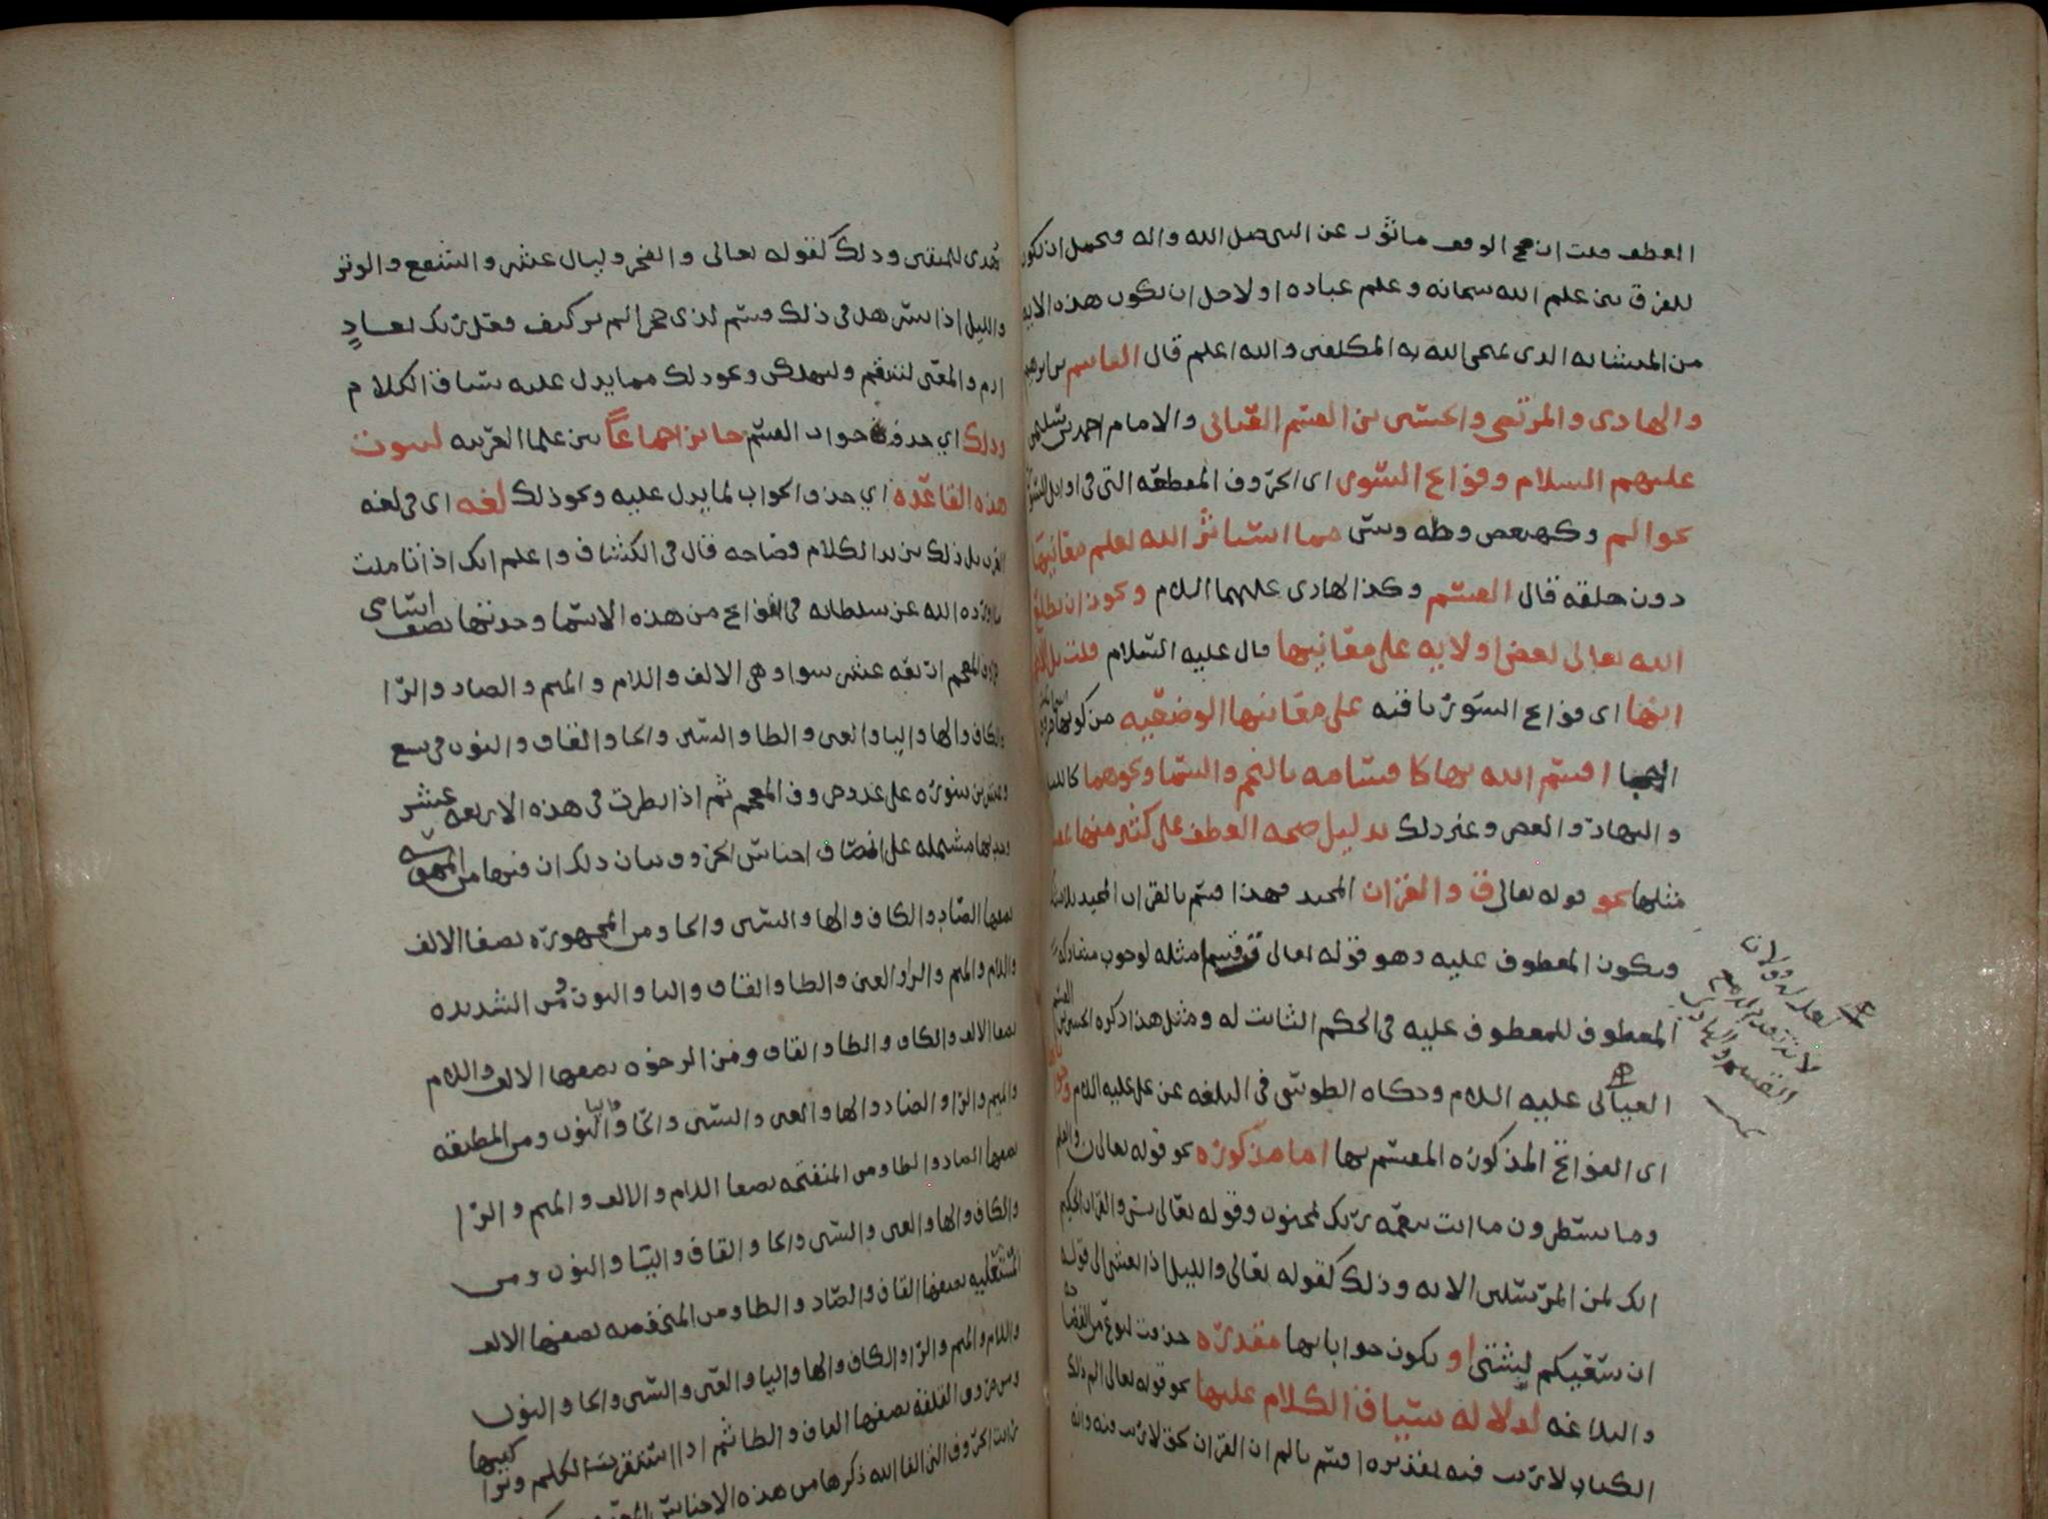 العطف قلت ان صح الوقف مأثور عن النبي صلى الله واله ويحتمل ان يكون
للفرق بين علم الله سبحانه وعلم عباده او لاجل ان يكون هذه الايه
من المتشابه الذي يمتحن الله به المكلفين والله اعلم قال القاسم بن ابرهيم
والهادي والمرتضى والحسين بن القسم العياني والامام احمد بن سليمن
عليهم السلام وفواتح السور اي الحروف المقطعه التي في اوايل السور
نحو الم وكهيعص وطه ويس مما استأثر الله بعلم معانيها
دون خلقه قال القسم وكذا الهادي عليهما السلام ويجوز ان يطلع
الله تعالى بعض اوليايه على معانيها قال عليه السلام قلت بل
انها اي فواتح السور باقيه على معانيها الوضعيه من كونها
اقسم الله بها كاقسامه بالنجم والسما ونحوهما كالليل
والنهار والعصر وغير ذلك بدليل صحه العطف على كثير منها
مثلها نحو قوله تعالى ق والقران المجيد فهذا قسم بالقران المجيد
ويكون المعطوف عليه وهو قوله تعالى ق قسما مثله لوجوب مشاركه
المعطوف للمعطوف عليه في الحكم الثابت له ومثل هذا ذكره الحسين بن القسم
العياني عليه السلام وحكاه الطوسي في البلغه عن علي عليه السلام
اي الفواتح المذكوره المقسم بها اما مذكوره نحو قوله تعالى ن والقلم
وما يسطرون ما انت بنعمه ربك بمجنون وقوله تعالى يس والقران الحكيم
انك لمن المرسلين الايه وذلك كقوله تعالى والليل اذا يغشى الى قوله
ان سعيكم لشتى او يكون جواباتها مقدره حذفت لنوع من الفصاحه
والبلاغه لدلاله سياق الكلام عليها نحو قوله تعالى الم ذلك
الكتاب لا ريب فيه تقديره اقسم بالم ان القران حق لا ريب فيه وانه
لانه تقدم
القسم والهادي
هدى للمتقين وذلك كقوله تعالى والفجر وليال عشر والشفع والوتر
والليل اذا يسر هل في ذلك قسم لذي حجر الم تر كيف فعل ربك بعاد
ارم والمعنى لننتقم ولنهلكن ونحو ذلك مما يدل عليه سياق الكلام
وذلك اي حذف جواب القسم جائز اجماعا بين علما العربيه لثبوت
هذه القاعده اي حذف الجواب لما يدل عليه ونحو ذلك لغه اي في لغه
العرب بل ذلك يزيد الكلام فصاحه قال في الكشاف واعلم انك اذا تاملت
ما اورده الله عز سلطانه في الفواتح من هذه الاسما وجدتها نصف اسامي
حروف المعجم اربعه عشر سوا وهي الالف واللام والميم والصاد والرا
والكاف والها واليا والعين والطا والسين والحا والقاف والنون في تسع
وعشرين سوره على عدد حروف المعجم ثم اذا نظرت في هذه الاربعه عشر
وجدتها مشتمله على انصاف اجناس الحروف بيان ذلك ان فيها من المهموسه
نصفها الصاد والكاف والها والسين والحا ومن المجهوره نصفها الالف
واللام والميم والرا والعين والطا والقاف واليا والنون ومن الشديده
نصفها الالف والكاف والطا والقاف ومن الرخوه نصفها الالف واللام
والميم والرا والصاد والها والعين والسين والحا واليا والنون ومن المطبقه
نصفها الصاد والطا ومن المنفتحه نصفها اللام والالف والميم والرا
والكاف والها والعين والسين والحا والقاف واليا والنون ومن
المستعليه نصفها القاف والصاد والطا ومن المنخفضه نصفها الالف
واللام والميم والرا والكاف والها واليا والعين والسين والحا والنون
ومن حروف القلقله نصفها القاف والطا ثم اذا استقريت الكلم وتراكيبها
رايت الحروف التي الغا الله ذكرها من هذه الاجناس